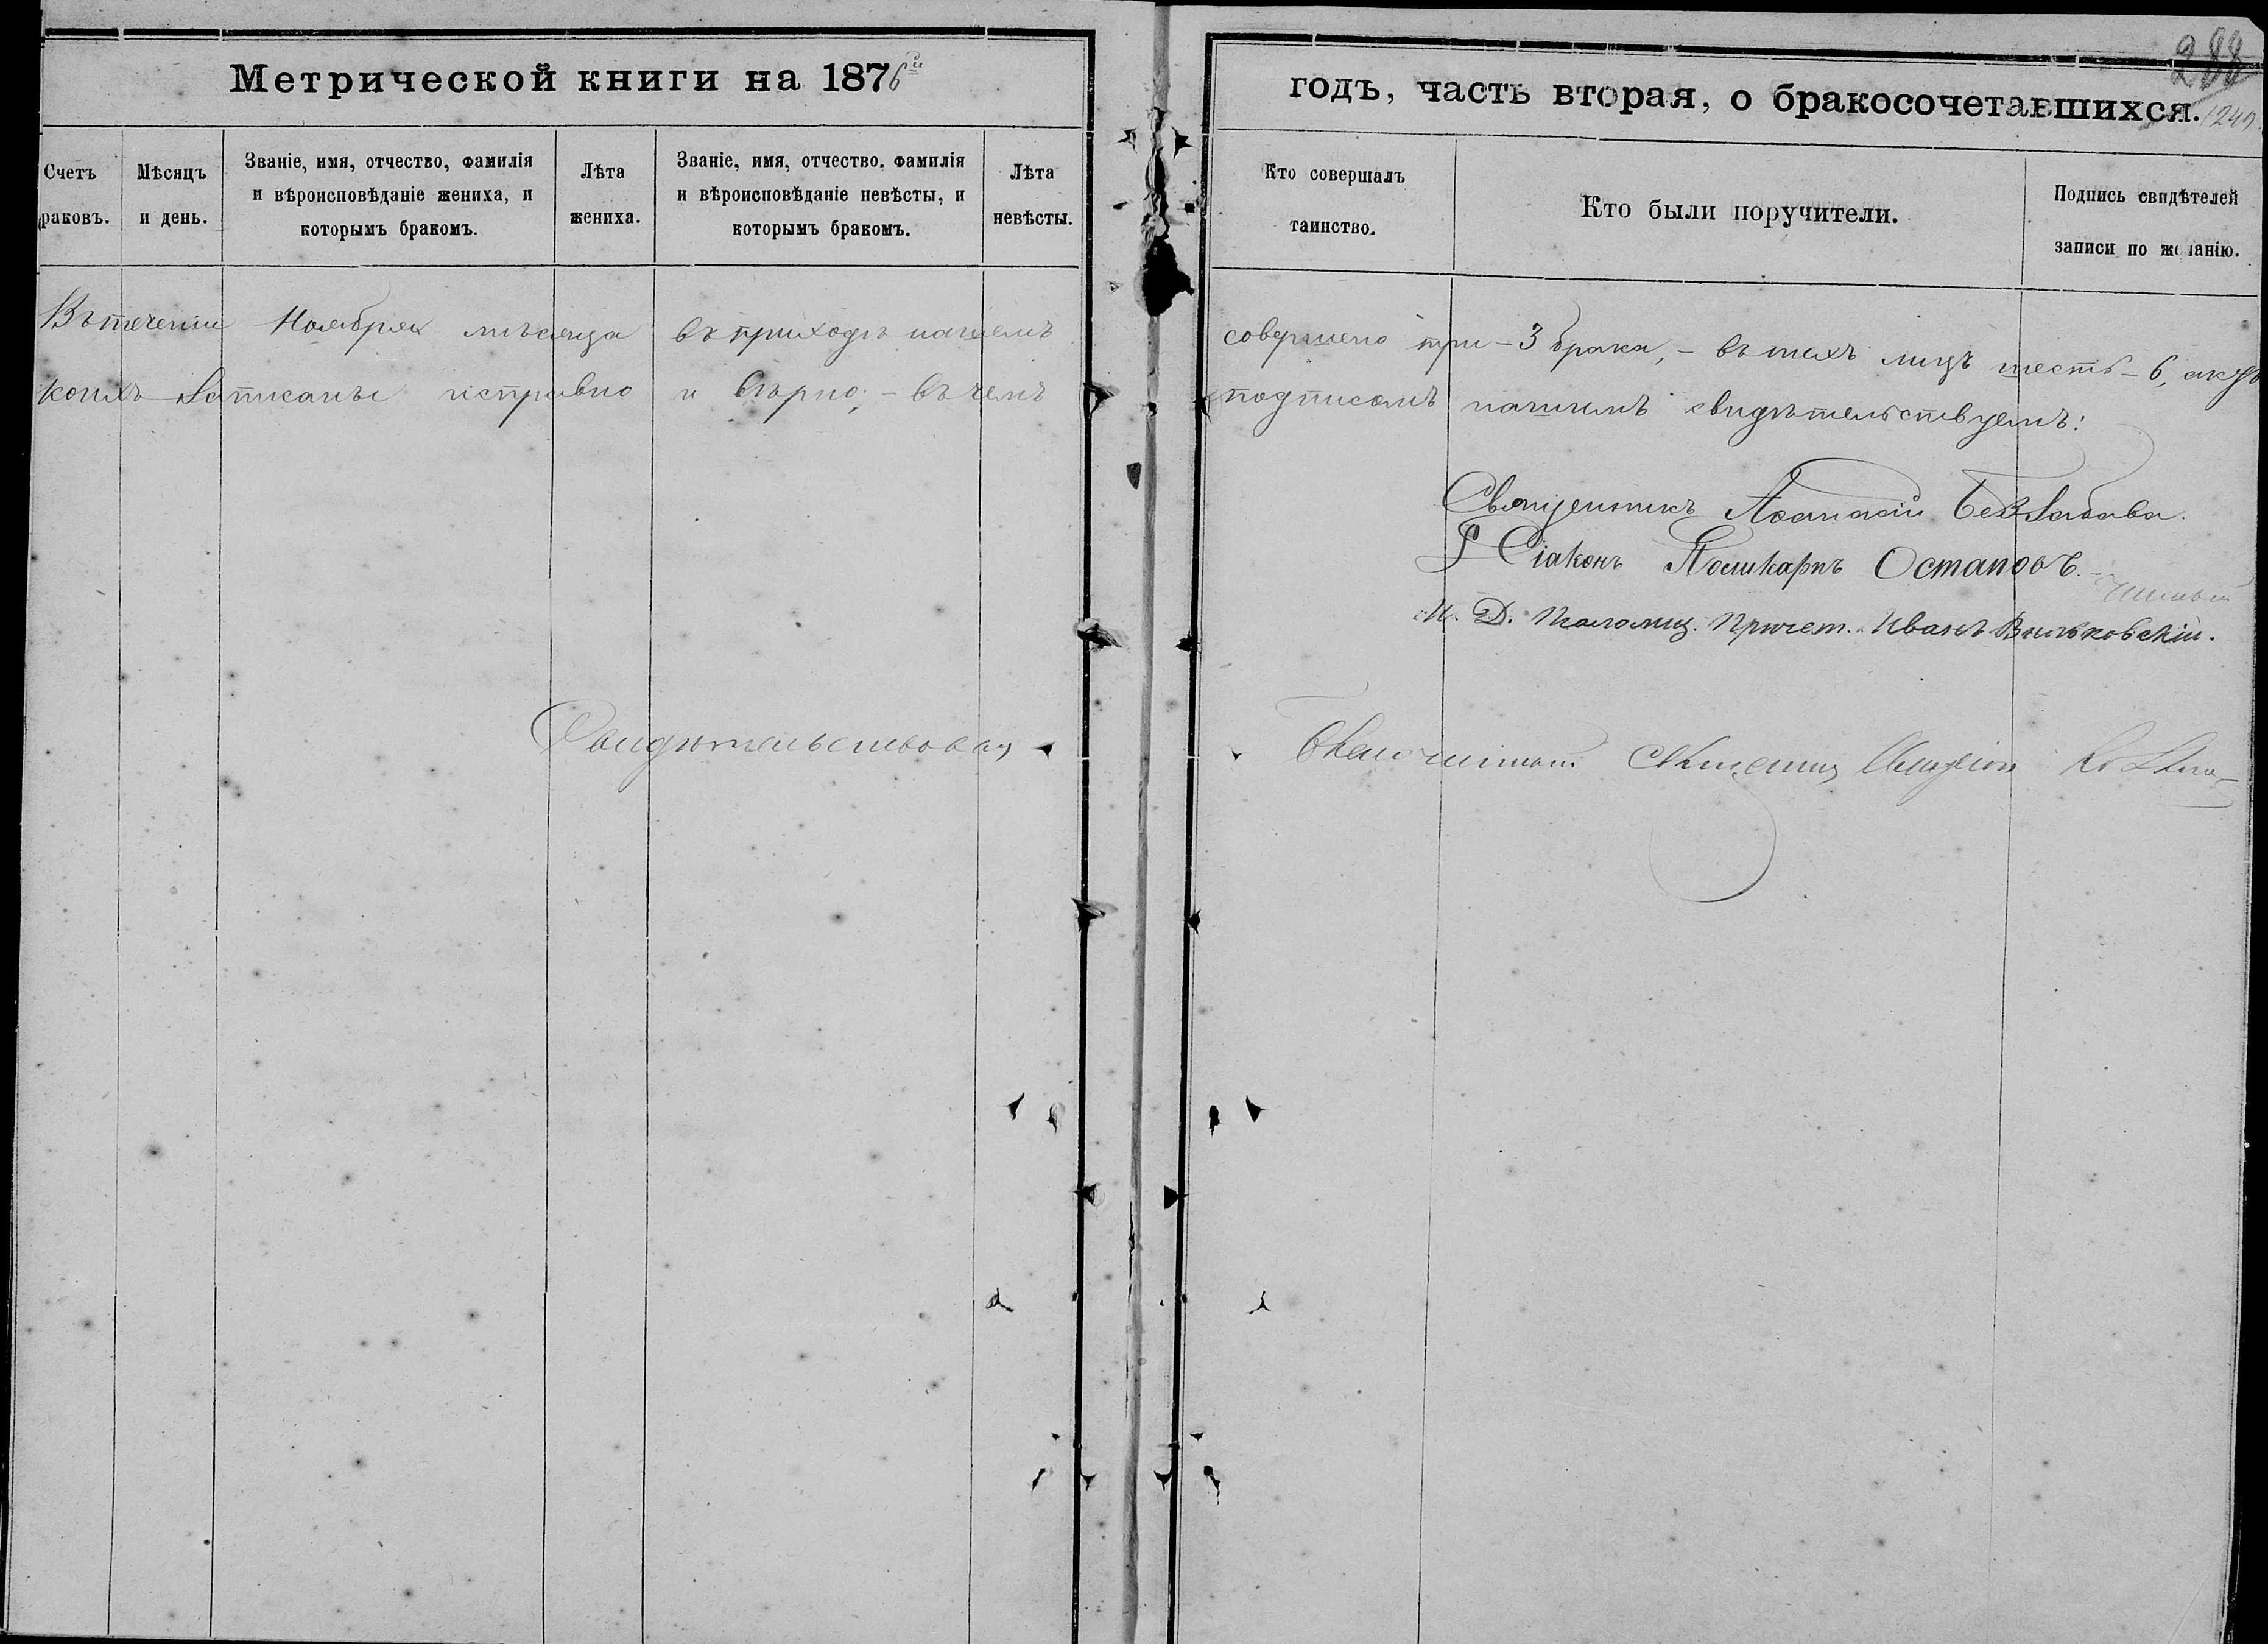 288
1249
Метрической книги на 1876й годъ, часть вторая, о бракосочетавшихся.
Счетъ
раковъ.
Мѣсяцъ
и день.
Званіе, имя, отчество, фамилія
и вѣроисповѣданіе жениха, и
которымъ бракомъ.
Лѣта
жениха.
Званіе, имя, отчество, фамилія
и вѣроисповѣданіе невѣсты, и
которымъ бракомъ.
Лѣта
невѣсты.
Кто совершалъ
таинство.
Кто были поручители.
Подпись свидѣтелей
записи по желанію.
Въ теченіи Ноября мѣсяца въ приходѣ нашемъ совершено три - 3 брака, - въ нихъ лицъ шесть - 6, актъ
коихъ записаны исправно и вѣрно; - въ чемъ подписомъ нашимъ свидѣтельствуемъ:
Священникъ Аѳанасій Беззабава.
Діаконъ Поликарпъ Остаповъ.
И. Д. Псаломщ. Причет. Иванъ Вильковскій.
Свидѣтельствовалъ